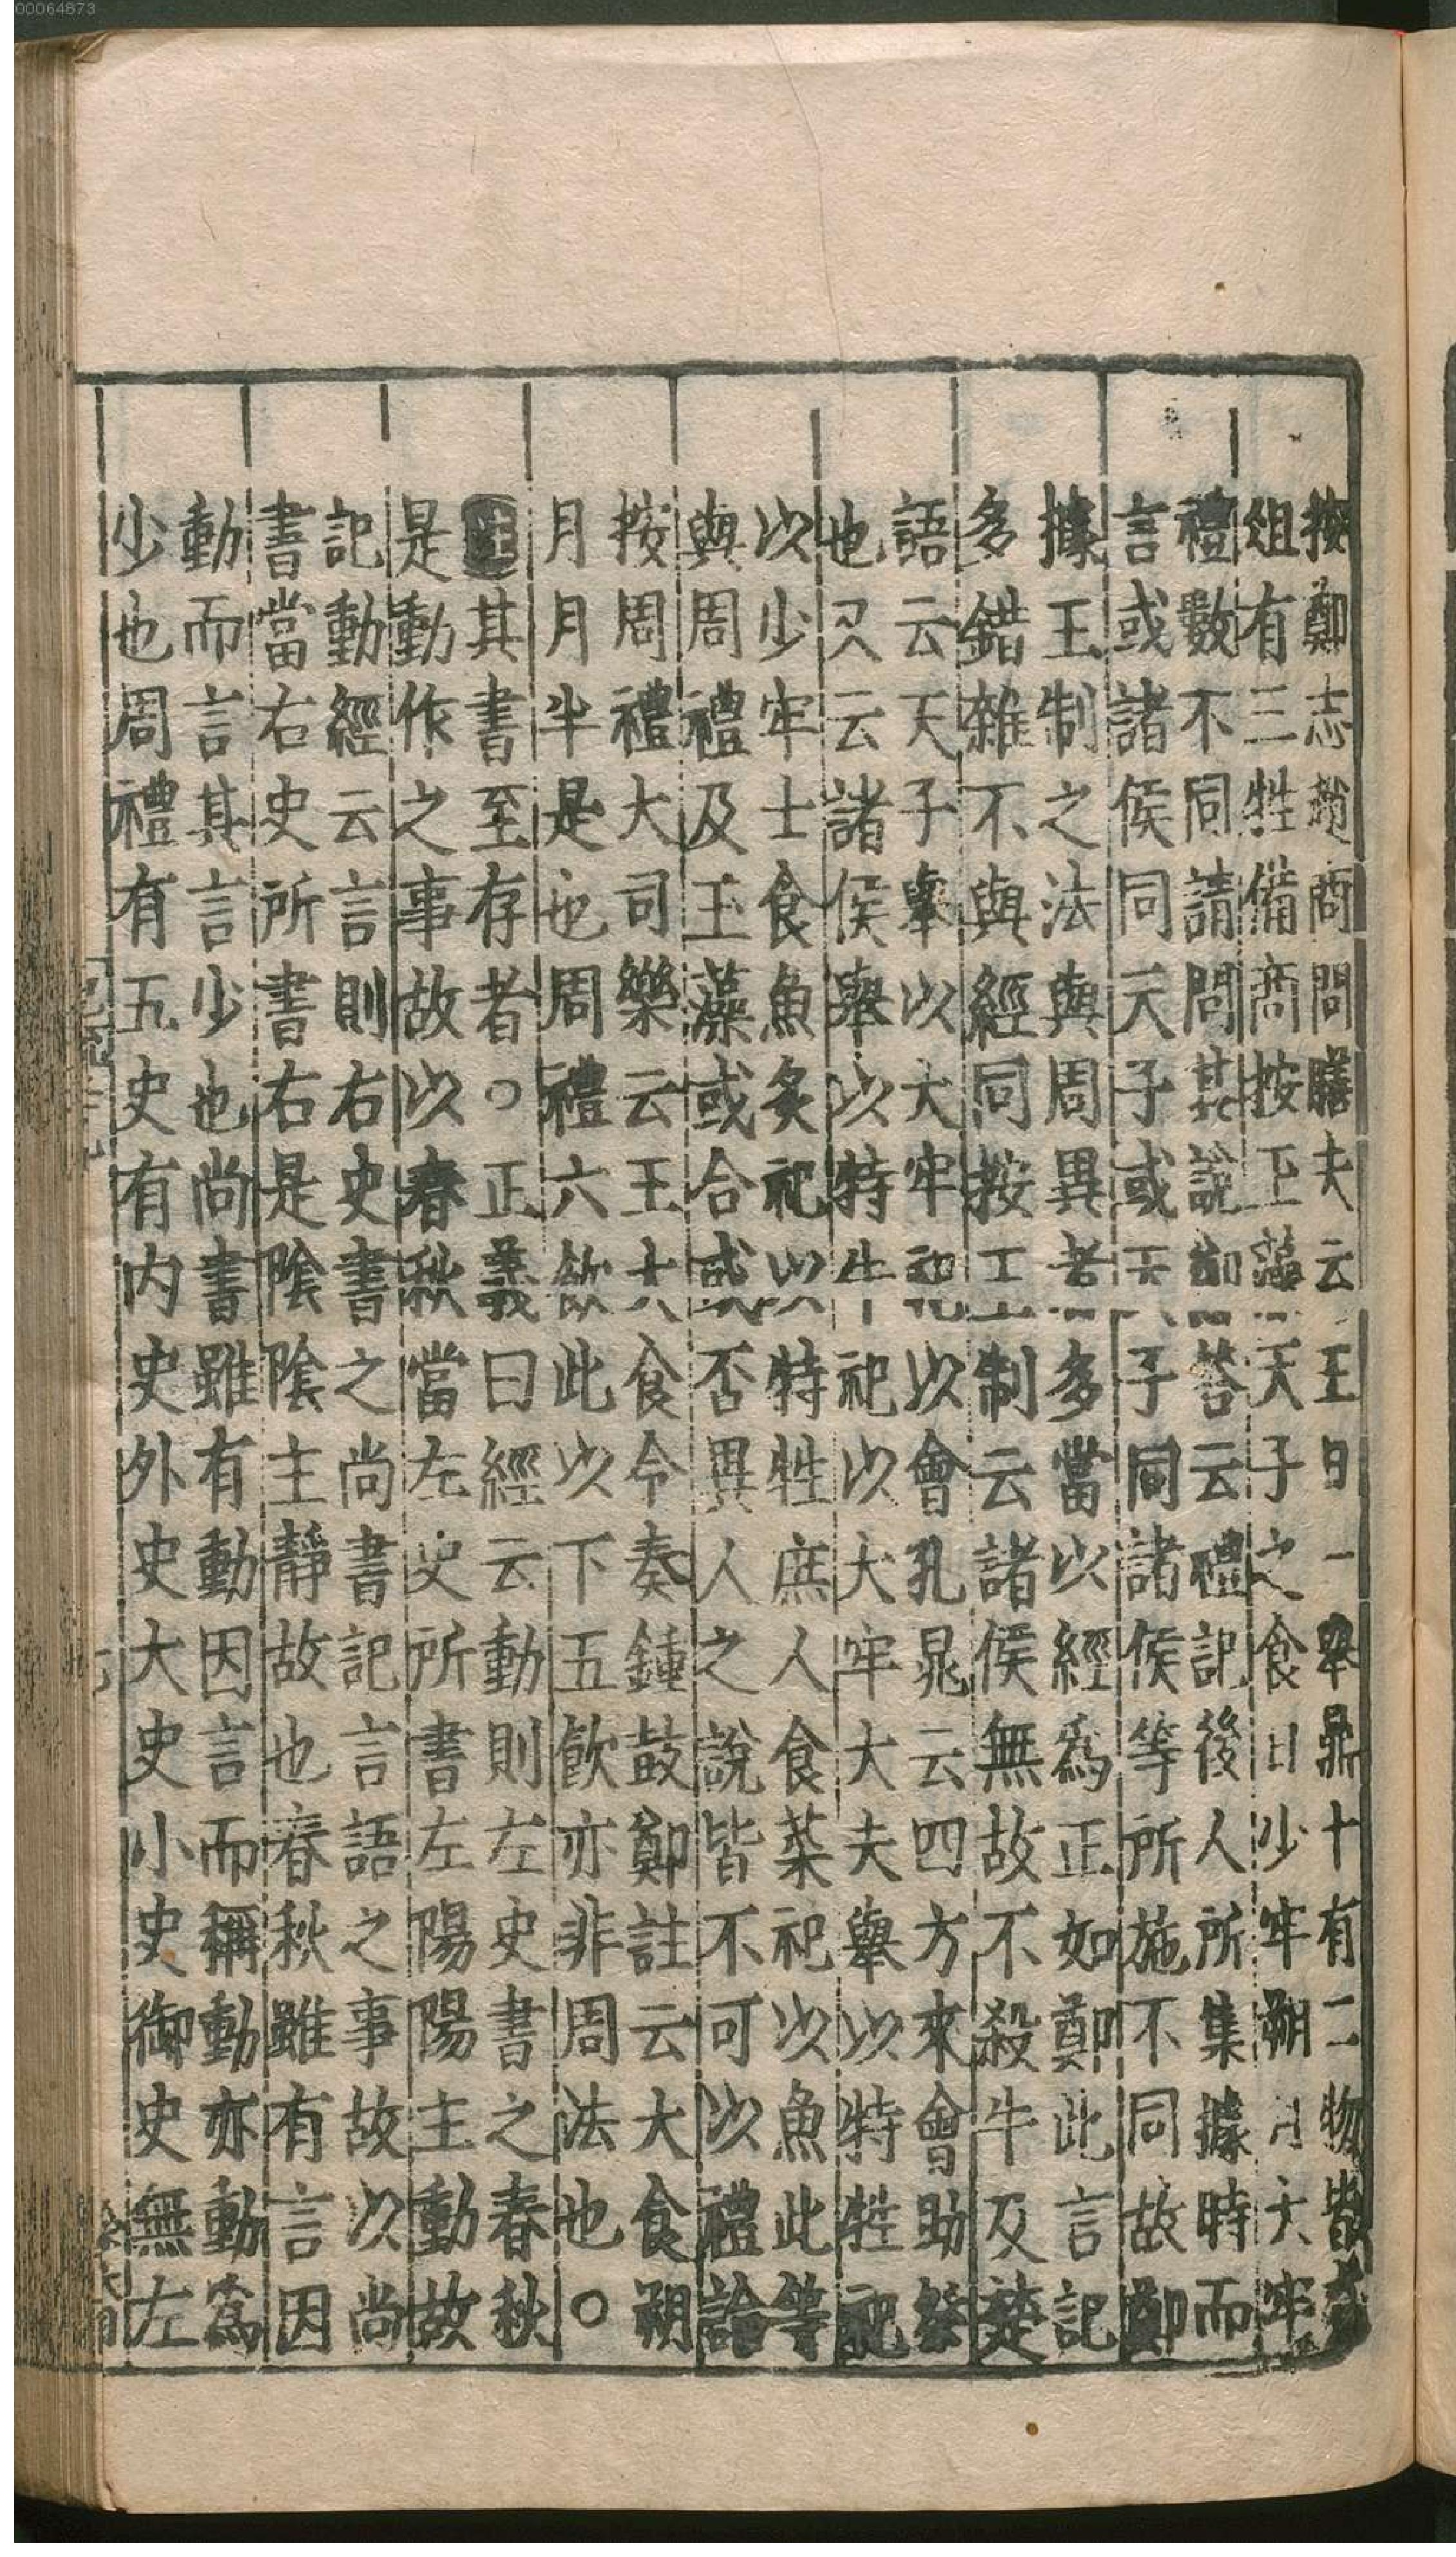 00064873
按鄭志趙商問膳夫云王日一舉鼎十有二物皆有
俎有三牲備商按玉藻天子之食日少牢朔月大牢
禮數不同請問其說鄭荅云禮記後人所集據時而
言或諸侯同天子或天子同諸侯等所施不同故鄭
據王制之法與周異者多當以經爲正如鄭此言記
多錯雜不與經同按王制云諸侯無故不殺牛及楚
語云天子舉以大牢祀以會孔晁云四方來會助祭
也又云諸侯舉以特牛祀以大牢大夫舉以特牲祀
以少牢士食魚炙祀以特牲庶人食菜祀以魚此等
與周禮及玉藻或合或否異人之說皆不可以禮論
按周禮大司樂云王大食令奏鍾鼓鄭註云大食朔
月月半是也周禮六飲此以下五飲亦非周法也○
其書至存者○正義曰經云動則左史書之春秋
是動作之事故以春秋當左史所書左陽陽主動故
記動經云言則右史書之尚書記言語之事故以尚
書當右史所書右是陰陰主靜故也春秋雖有言因
動而言其言少也尚書雖有動因言而稱動亦動爲
少也周禮有五史有内史外史大史小史御史無左